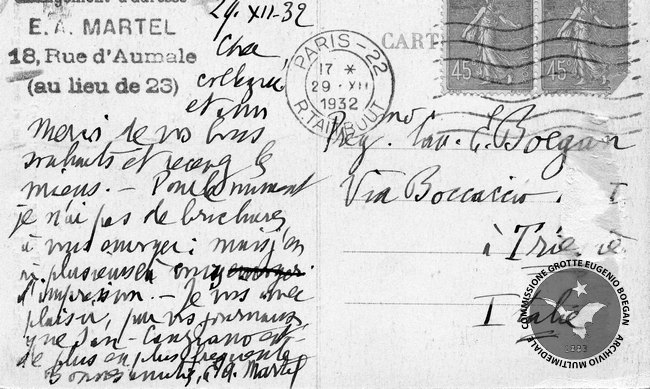 Changement d'adresse
E. A. MARTEL
18, Rue d'Aumale
(au lieu de 23)
29. XII - 32
Cher
collègue
et ami
Merci de vos bons
souhaits et recevez les
miens. — Pour le moment
je n'ai pas de brochures
à vous envoyer ; mais j'en
ai plusieurs en cours
d'impression. — Je vois avec
plaisir, par vos journaux,
que San-Canziano est
de plus en plus fréquenté
Bonne année, E A. Martel
PARIS - 22
17 *
29 - XII
1932
R. TAITBOUT
CART
45
45
Preg.mo Cav. E. Boegan
Via Boccaccio
à Trieste
Italie
COMMISSIONE GROTTE EUGENIO BOEGAN
ARCHIVIO MULTIMEDIALE
1883